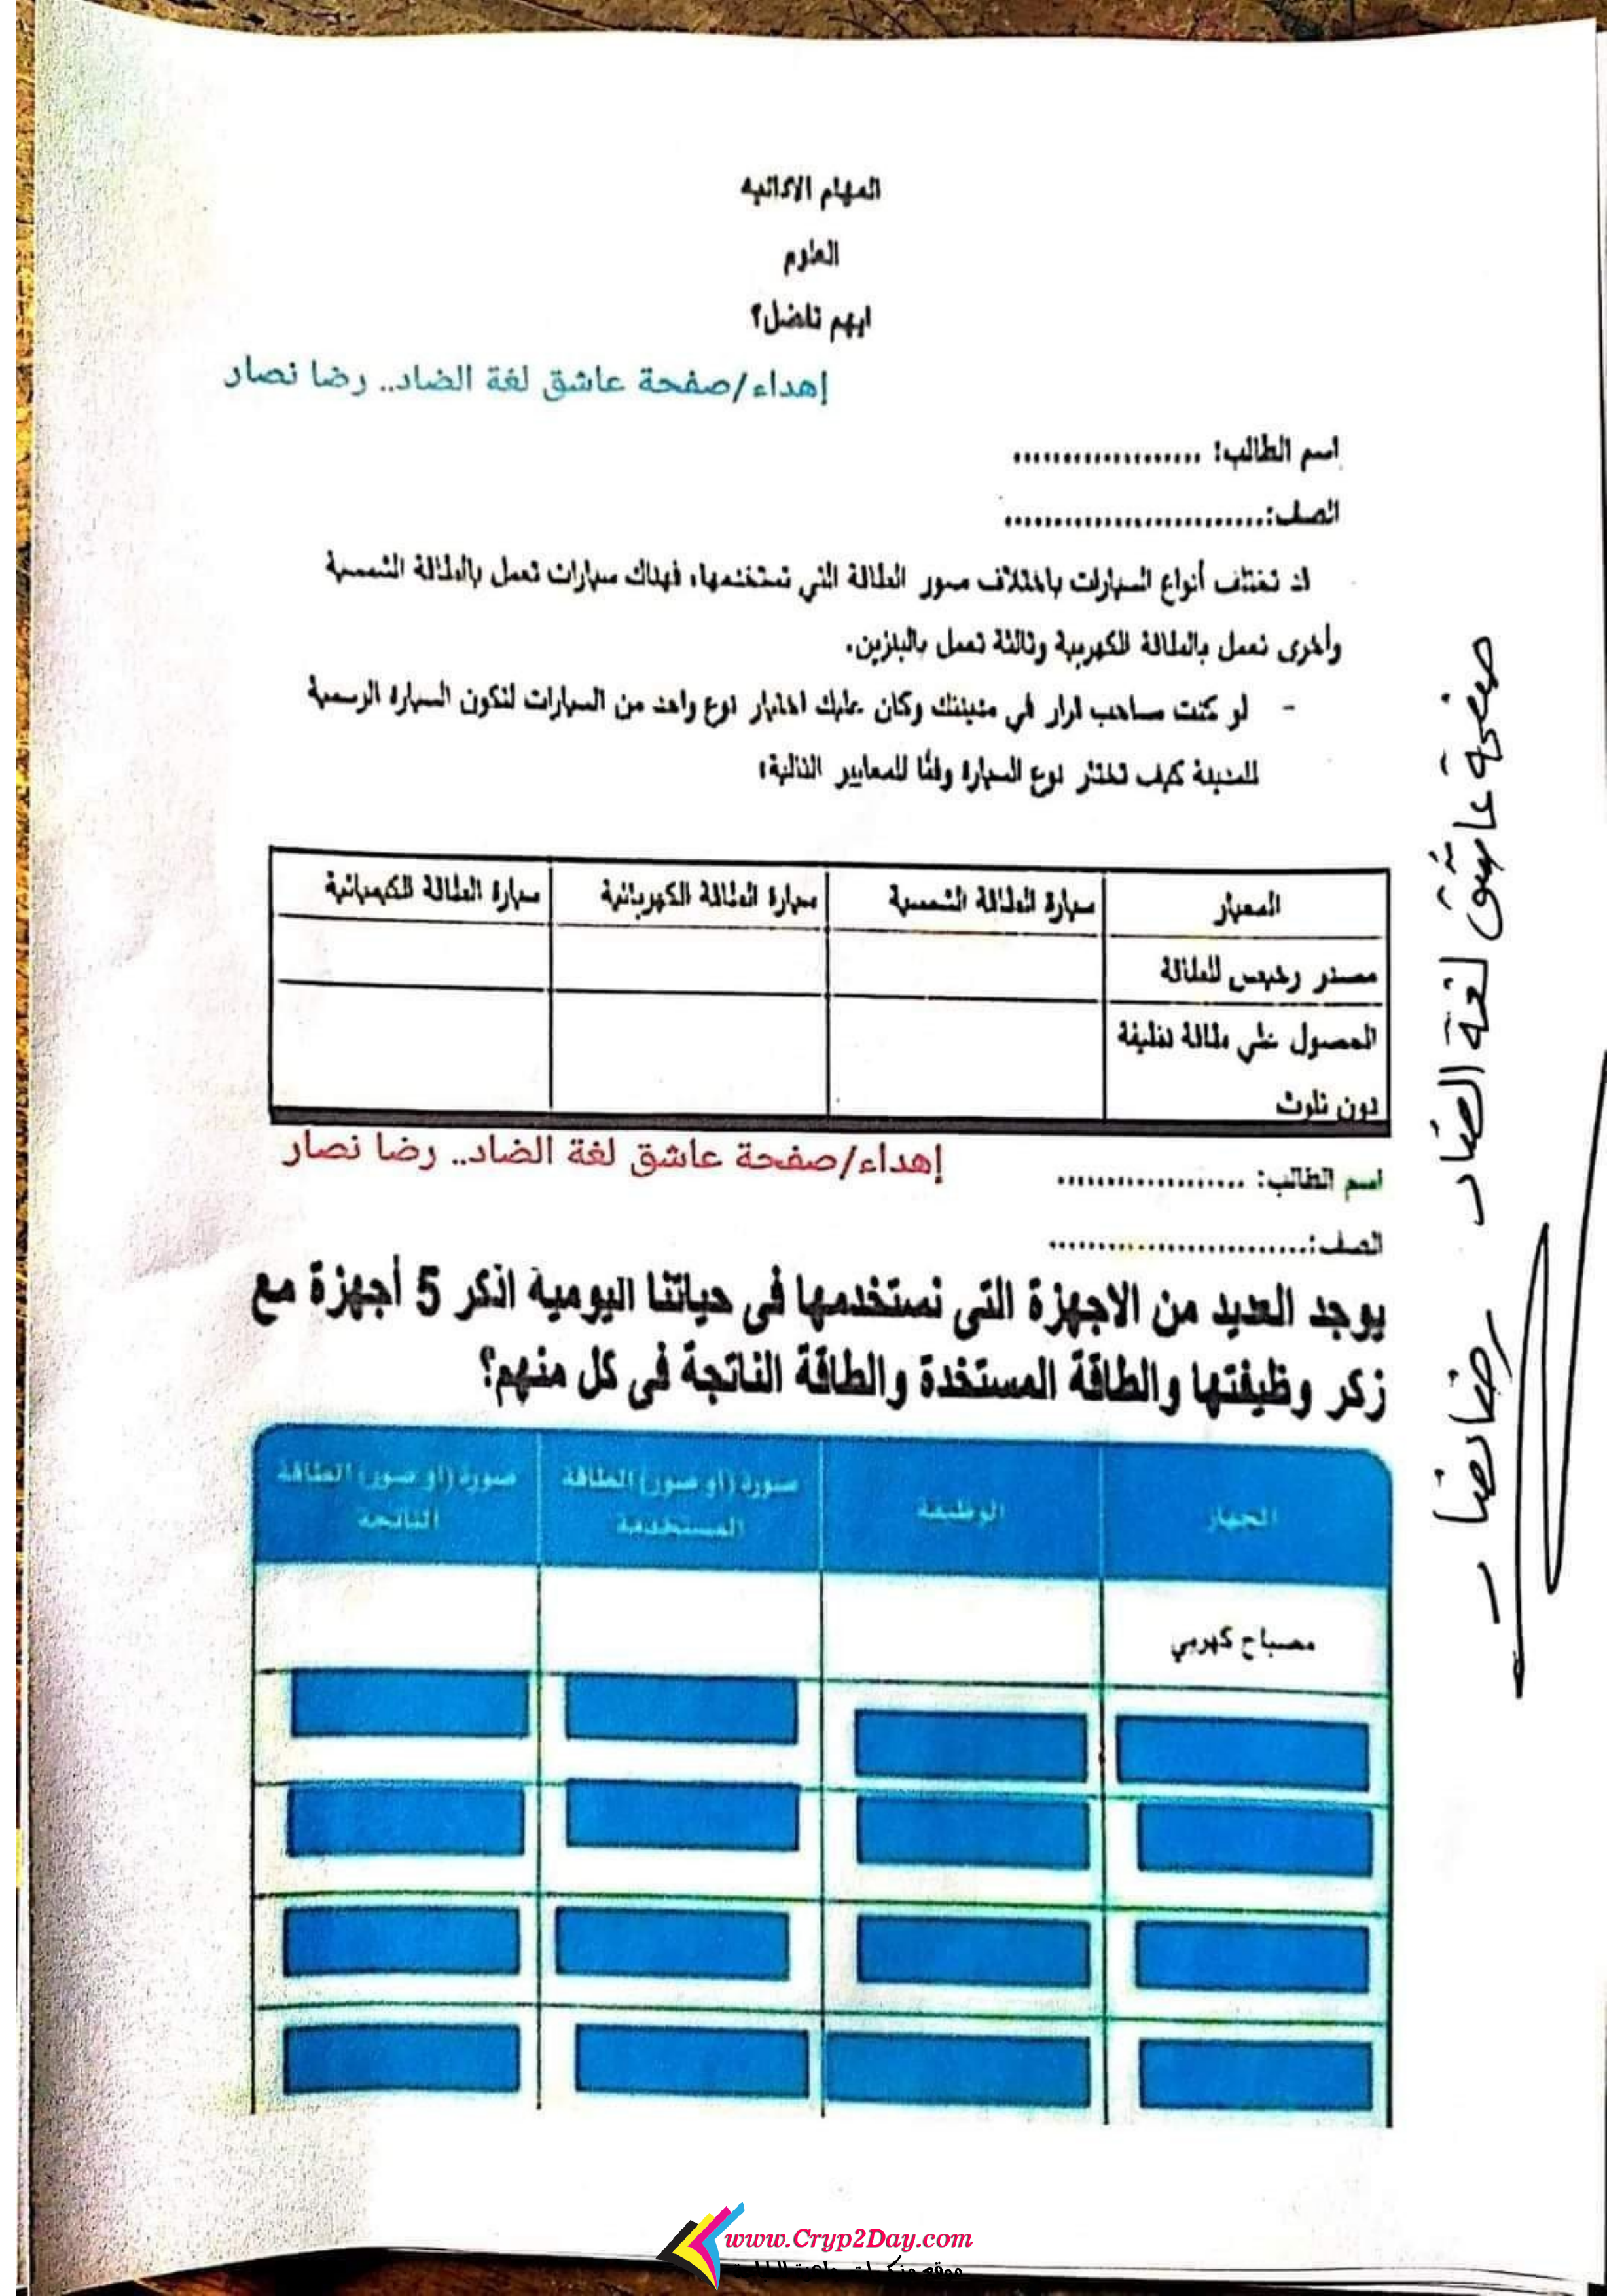 المهام الادائيه
العلوم
ايهم تفضل؟
إهداء/صفحة عاشق لغة الضاد.. رضا نصار
اسم الطالب: ...................
الصف:..........................
قد تختلف أنواع السيارات باختلاف صور الطاقة التي تستخدمها، فهناك سيارات تعمل بالطاقة الشمسية
وأخرى تعمل بالطاقة الكهربية وثالثة تعمل بالبنزين.
- لو كنت صاحب قرار في مدينتك وكان عليك اختيار نوع واحد من السيارات لتكون السيارة الرسمية
للمدينة كيف تختار نوع السيارة وفقًا للمعايير التالية:
المعيار سيارة الطاقة الشمسية سيارة الطاقة الكهربائية سيارة الطاقة الكيميائية
مصدر رخيص للطاقة
الحصول على طاقة نظيفة
دون تلوث
إهداء/صفحة عاشق لغة الضاد.. رضا نصار
اسم الطالب: ...................
الصف:..........................
يوجد العديد من الاجهزة التى نستخدمها فى حياتنا اليومية اذكر 5 أجهزة مع
زكر وظيفتها والطاقة المستخدة والطاقة الناتجة فى كل منهم؟
الجهاز الوظيفة صورة (أو صور) الطاقة المستخدمة صورة (أو صور) الطاقة الناتجة
مصباح كهربي
صفحة عاشق لغة الضاد رضا نصار
www.Cryp2Day.com